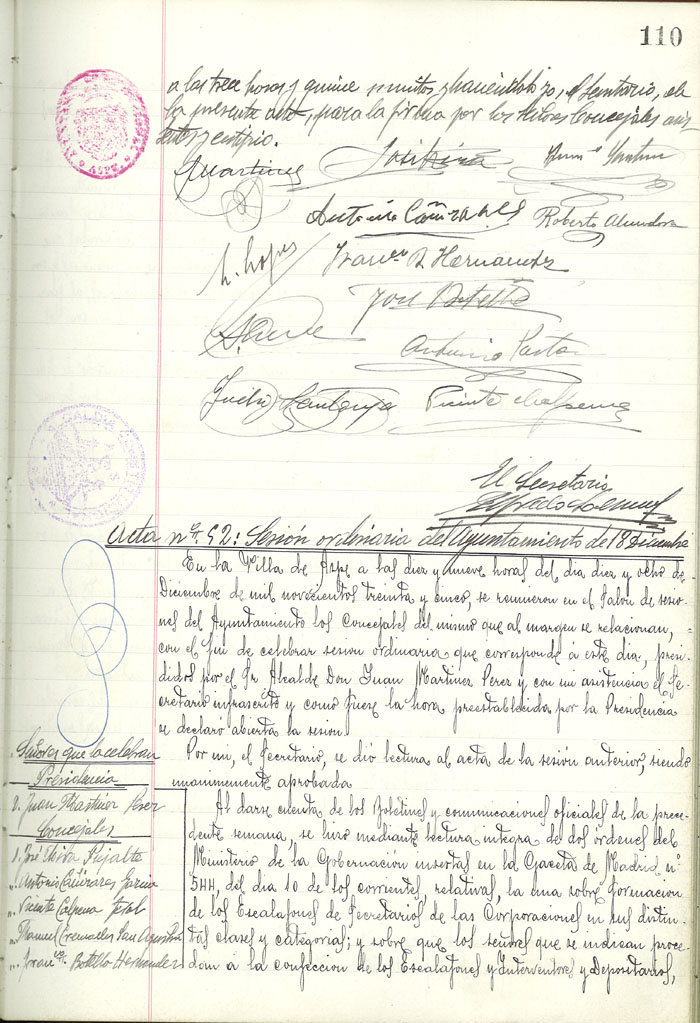 110
a las trece horas y quince minutos y haciendolo yo, el Secretario, de
la presente acta, para la firma por los señores Concejales
certifico.
Martinez
Antonio Cañizares
Roberto Almodova
h. Lopez
Franco B Hernandez
José Botella
Antonio Pastor
Vicente Calpena
El Secretario
Acta nº 52: Sesión ordinaria del Ayuntamiento de 18 Diciembre
En la Villa de Aspe a las diez y nueve horas del dia diez y ocho de
Diciembre de mil novecientos treinta y cinco, se reunieron en el Salon de sesio-
nes del Ayuntamiento los Concejales del mismo que al margen se relacionan,
con el fin de celebrar sesion ordinaria que corresponde a este dia, presi-
didos por el Sr. Alcalde Don Juan Martinez Perez y con mi asistencia el Se-
cretario infrascrito y como fuese la hora preestablecida por la Presidencia
se declaró abierta la sesion.
Por mi, el Secretario, se dió lectura al acta de la sesión anterior, siendo
unanimemente aprobada
Al darse cuenta de los Boletines y comunicaciones oficiales de la prece-
dente semana, se hizo mediante lectura integra de dos órdenes del
Ministerio de la Gobernacion insertas en la Gaceta de Madrid nº
544, del dia 10 de los corrientes, relativas, la una sobre formacion
de los Escalafones de Secretarios de las Corporaciones en sus distin-
tas clases y categorias; y sobre que los señores que se indican proce-
dan a la confeccion de los Escalafones y Interventores y Depositarios,
Señores que la celebran
Presidencia
D. Juan Martinez Perez
Concejales
D. José
" Antonio Cañizares Garcia
" Vicente Calpena
" Manuel Cremades San Agustin
" Franco Botella Hernandez